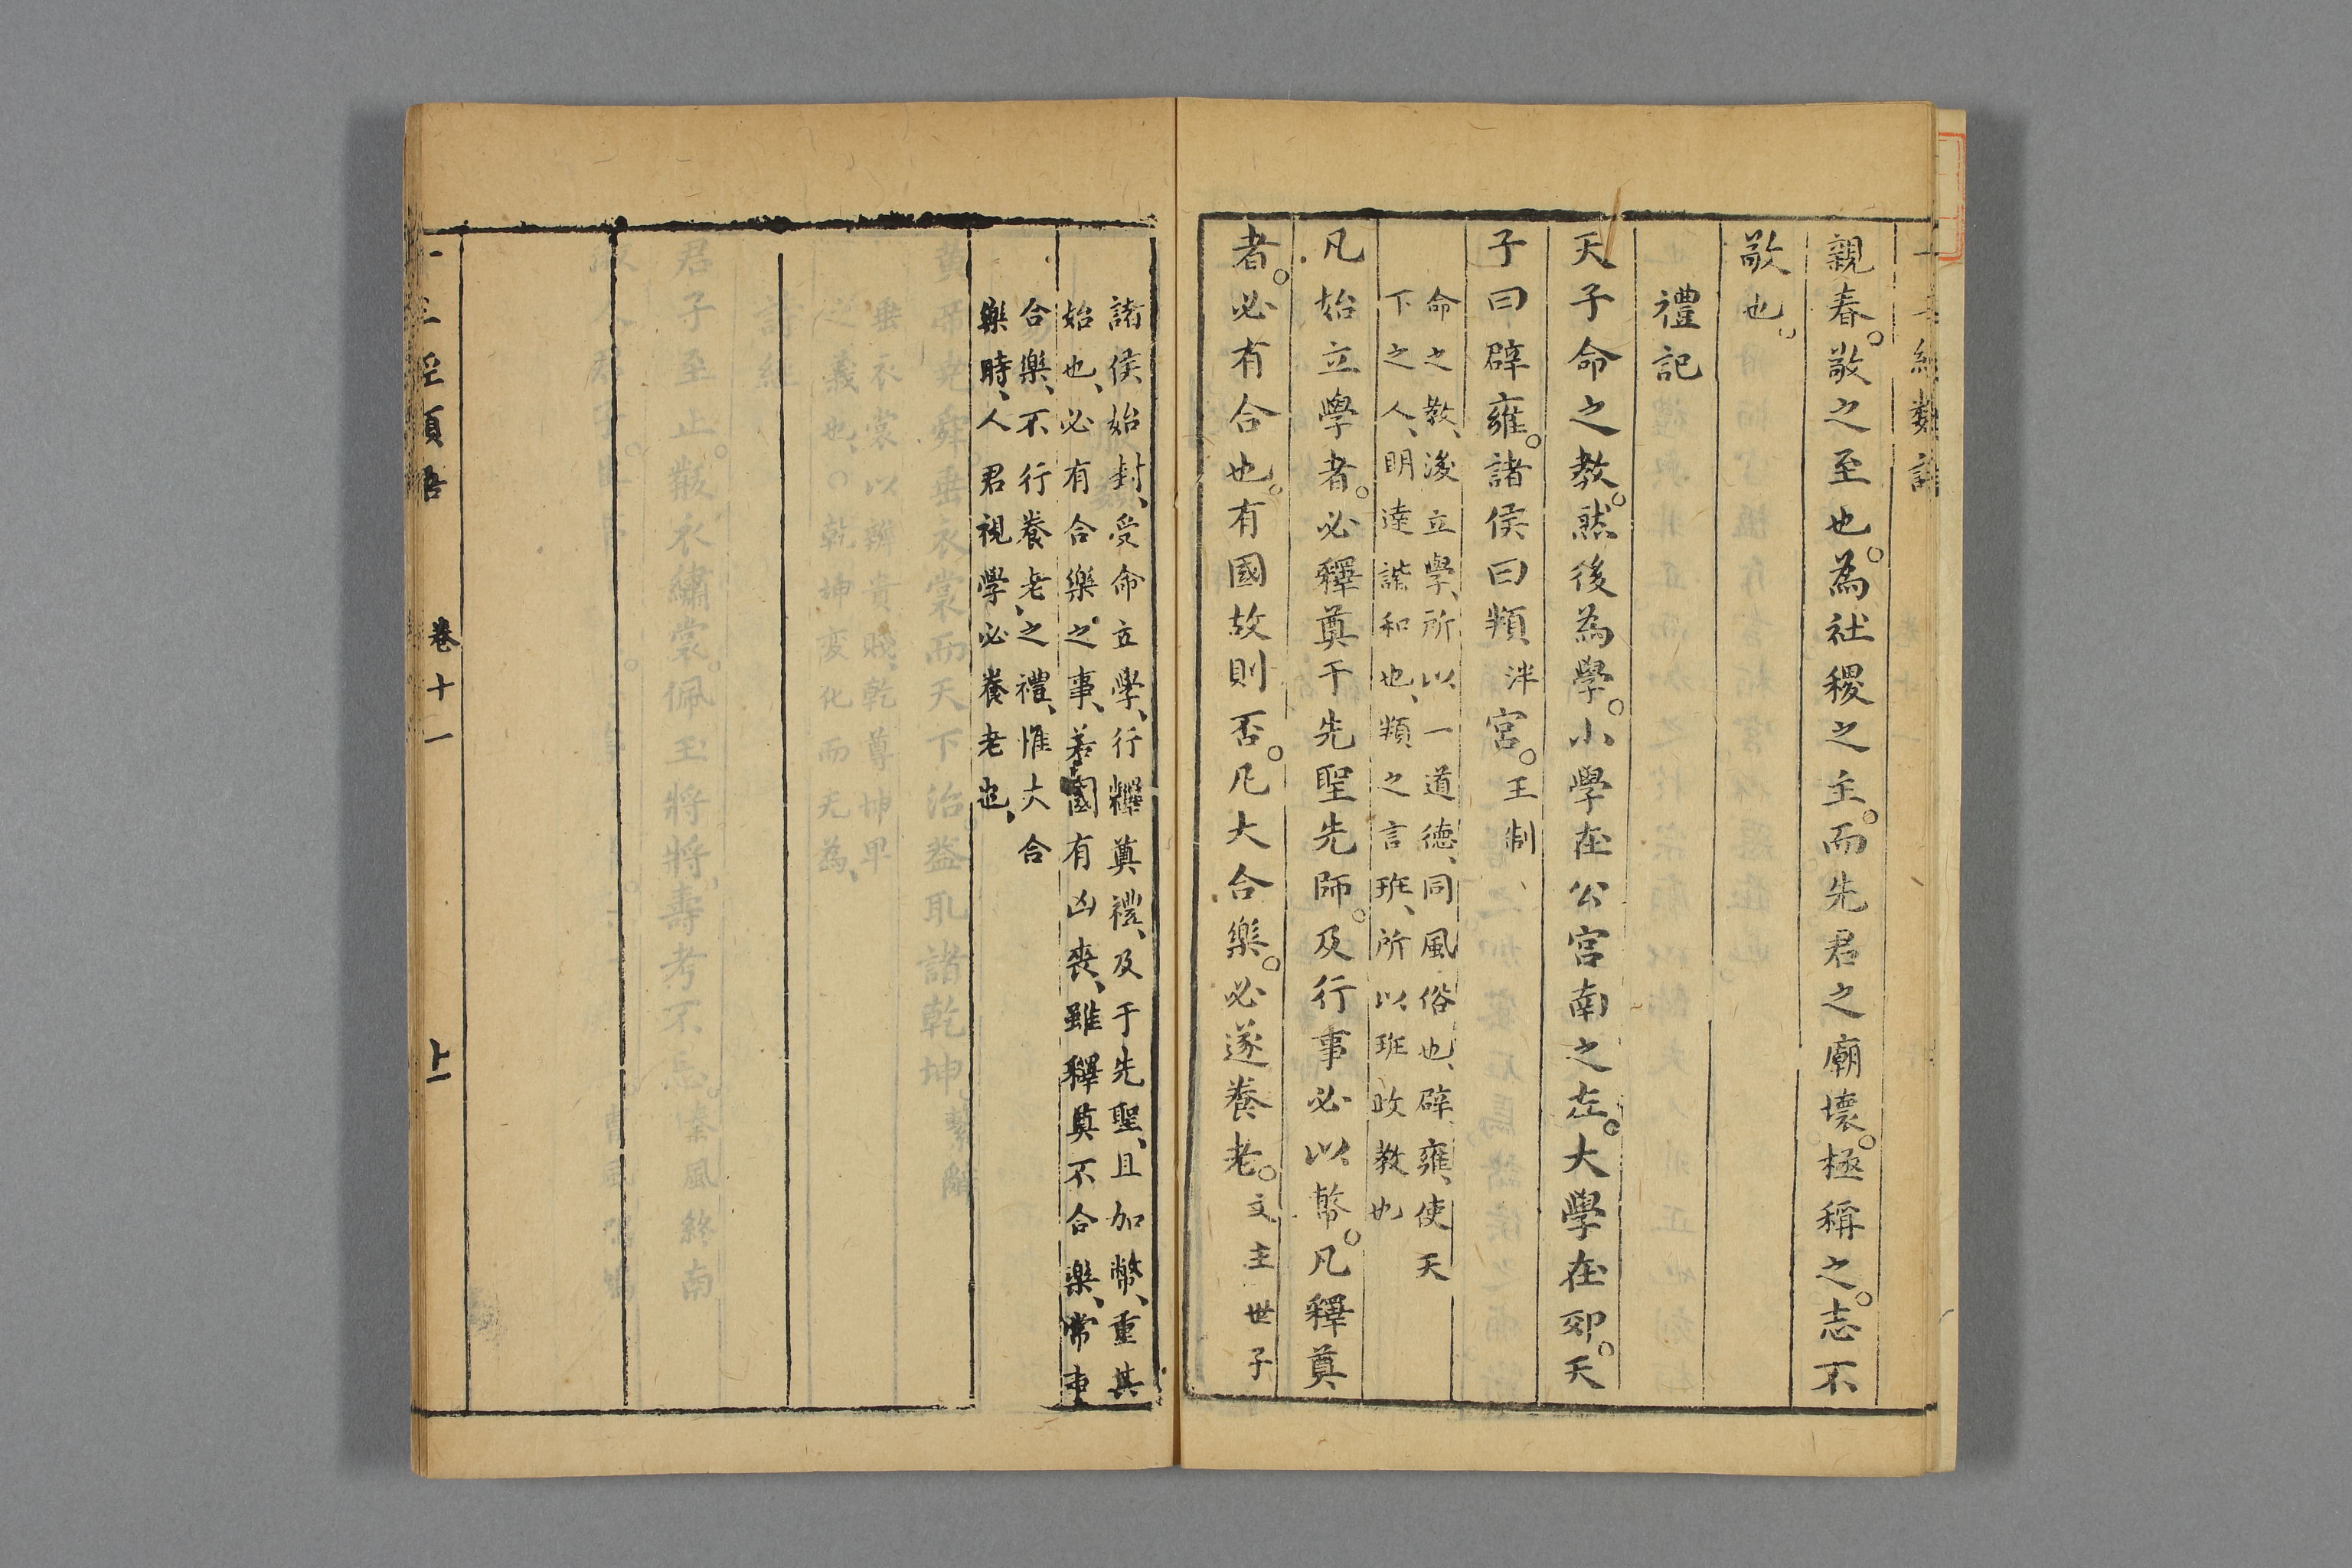 親舂。敬之至也。為社稷之主。而先君之廟壞。極稱之。志不
敬也。
禮記
天子命之教。然後為學。小學在公宮南之左。大學在郊。天
子曰辟雍。諸侯曰頖泮宮。王制
命之教、後立學、所以一道德、同風俗也、辟雍、使天
下之人、明達諧和也、頖之言班、所以班政教也
凡始立學者。必釋奠于先聖先師。及行事必以幣。凡釋奠
者。必有合也。有國故則否。凡大合樂。必遂養老。文王世子
諸侯始封、受命立學、行釋奠禮、及于先聖、且加幣、重其
始也、必有合樂之事、若國有凶喪、雖釋奠不合樂、常事
合樂、不行養老之禮、惟大合
樂時、人君視學必養老也、
卷十一